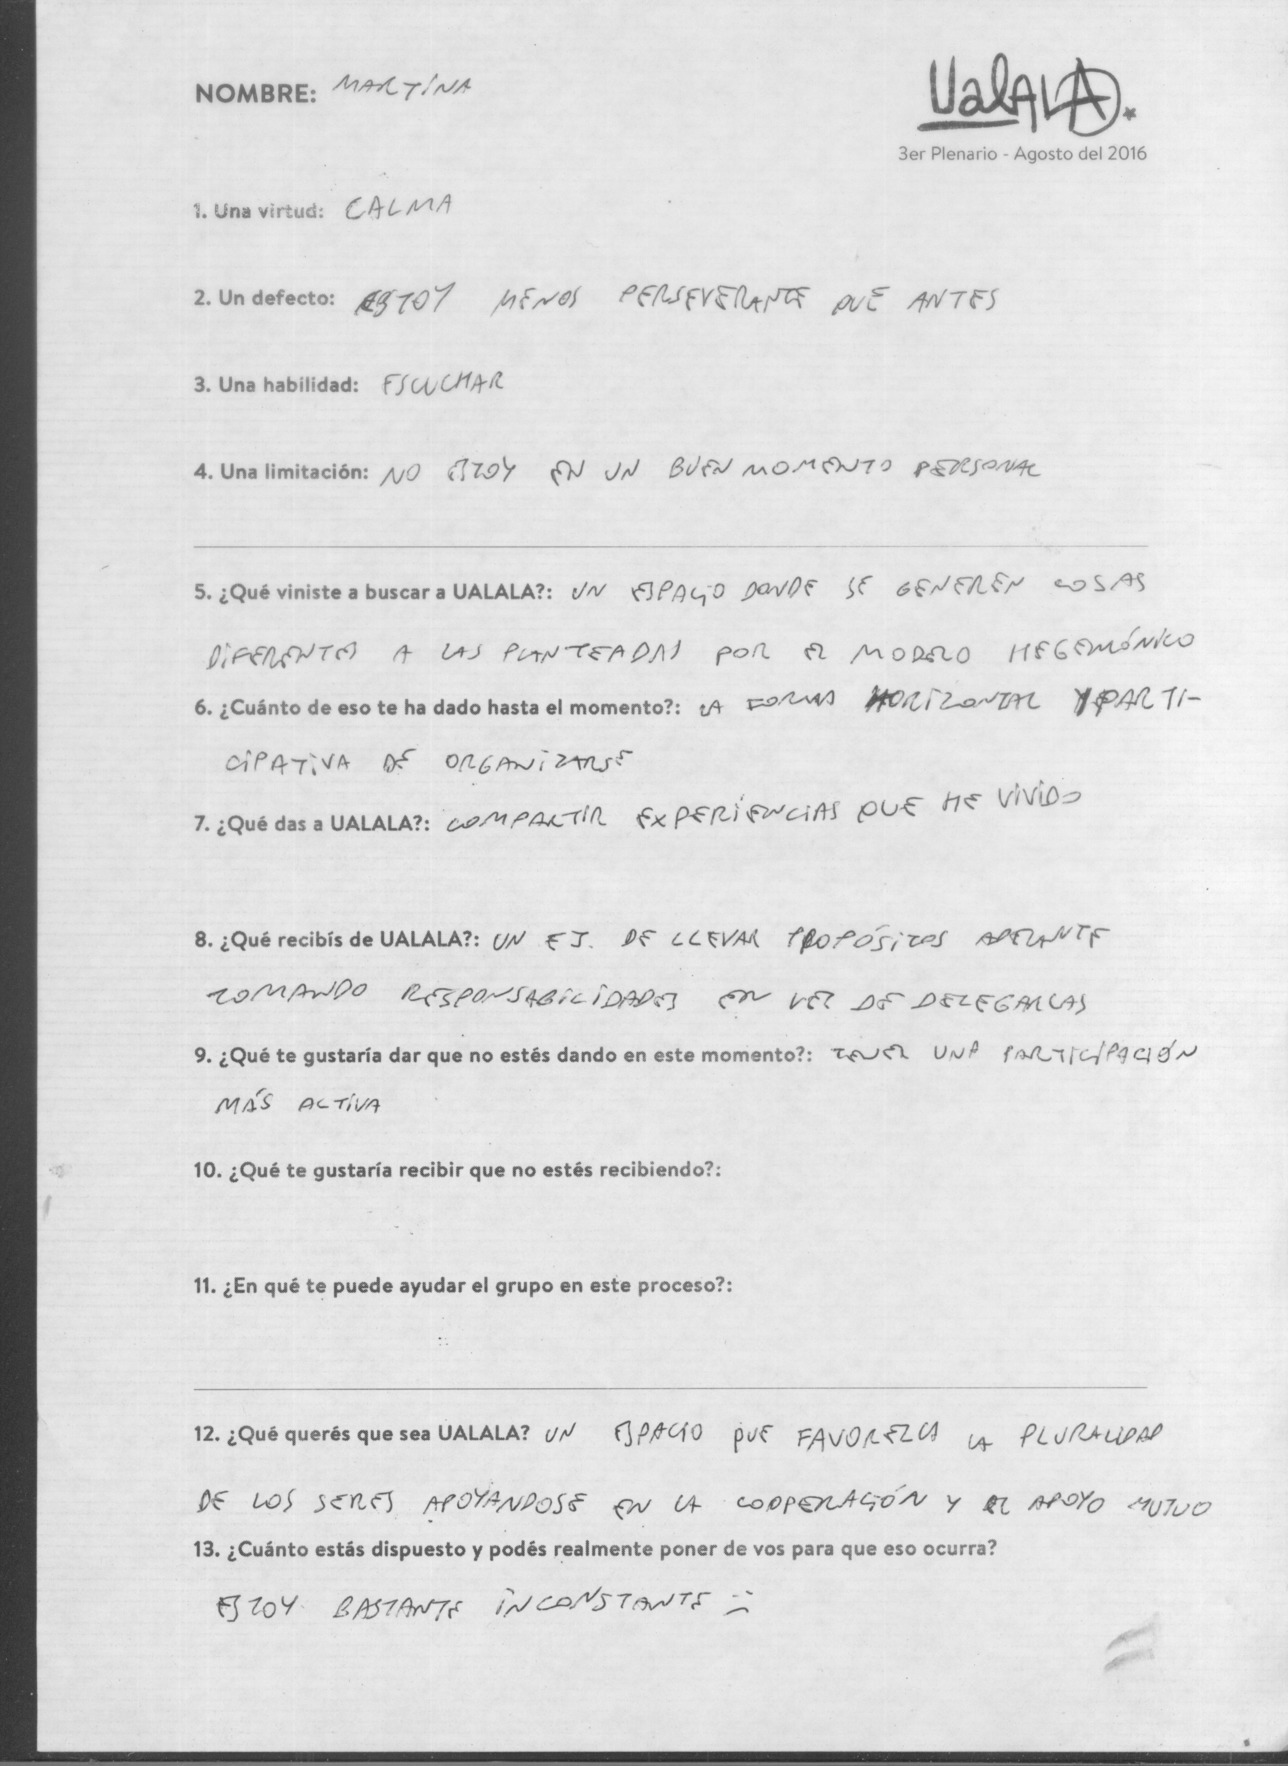 NOMBRE: MARTINA
UalALA
3er Plenario - Agosto del 2016
1. Una virtud: CALMA
2. Un defecto: ESTOY MENOS PERSEVERANTE QUE ANTES
3. Una habilidad: ESCUCHAR
4. Una limitación: NO ESTOY EN UN BUEN MOMENTO PERSONAL
5. ¿Qué viniste a buscar a UALALA?: UN ESPACIO DONDE SE GENEREN COSAS
DIFERENTES A LAS PLANTEADAS POR EL MODELO HEGEMÓNICO
6. ¿Cuánto de eso te ha dado hasta el momento?: LA FORMA HORIZONTAL Y PARTI-
CIPATIVA DE ORGANIZARSE
7. ¿Qué das a UALALA?: COMPARTIR EXPERIENCIAS QUE HE VIVIDO
8. ¿Qué recibís de UALALA?: UN EJ. DE LLEVAR PROPÓSITOS ADELANTE
TOMANDO RESPONSABILIDADES EN VEZ DE DELEGARLAS
9. ¿Qué te gustaría dar que no estés dando en este momento?: TENER UNA PARTICIPACIÓN
MÁS ACTIVA
10. ¿Qué te gustaría recibir que no estés recibiendo?:
11. ¿En qué te puede ayudar el grupo en este proceso?:
12. ¿Qué querés que sea UALALA? UN ESPACIO QUE FAVOREZCA LA PLURALIDAD
DE LOS SERES APOYANDOSE EN LA COOPERACIÓN Y EL APOYO MUTUO
13. ¿Cuánto estás dispuesto y podés realmente poner de vos para que eso ocurra?
ESTOY BASTANTE INCONSTANTE :(